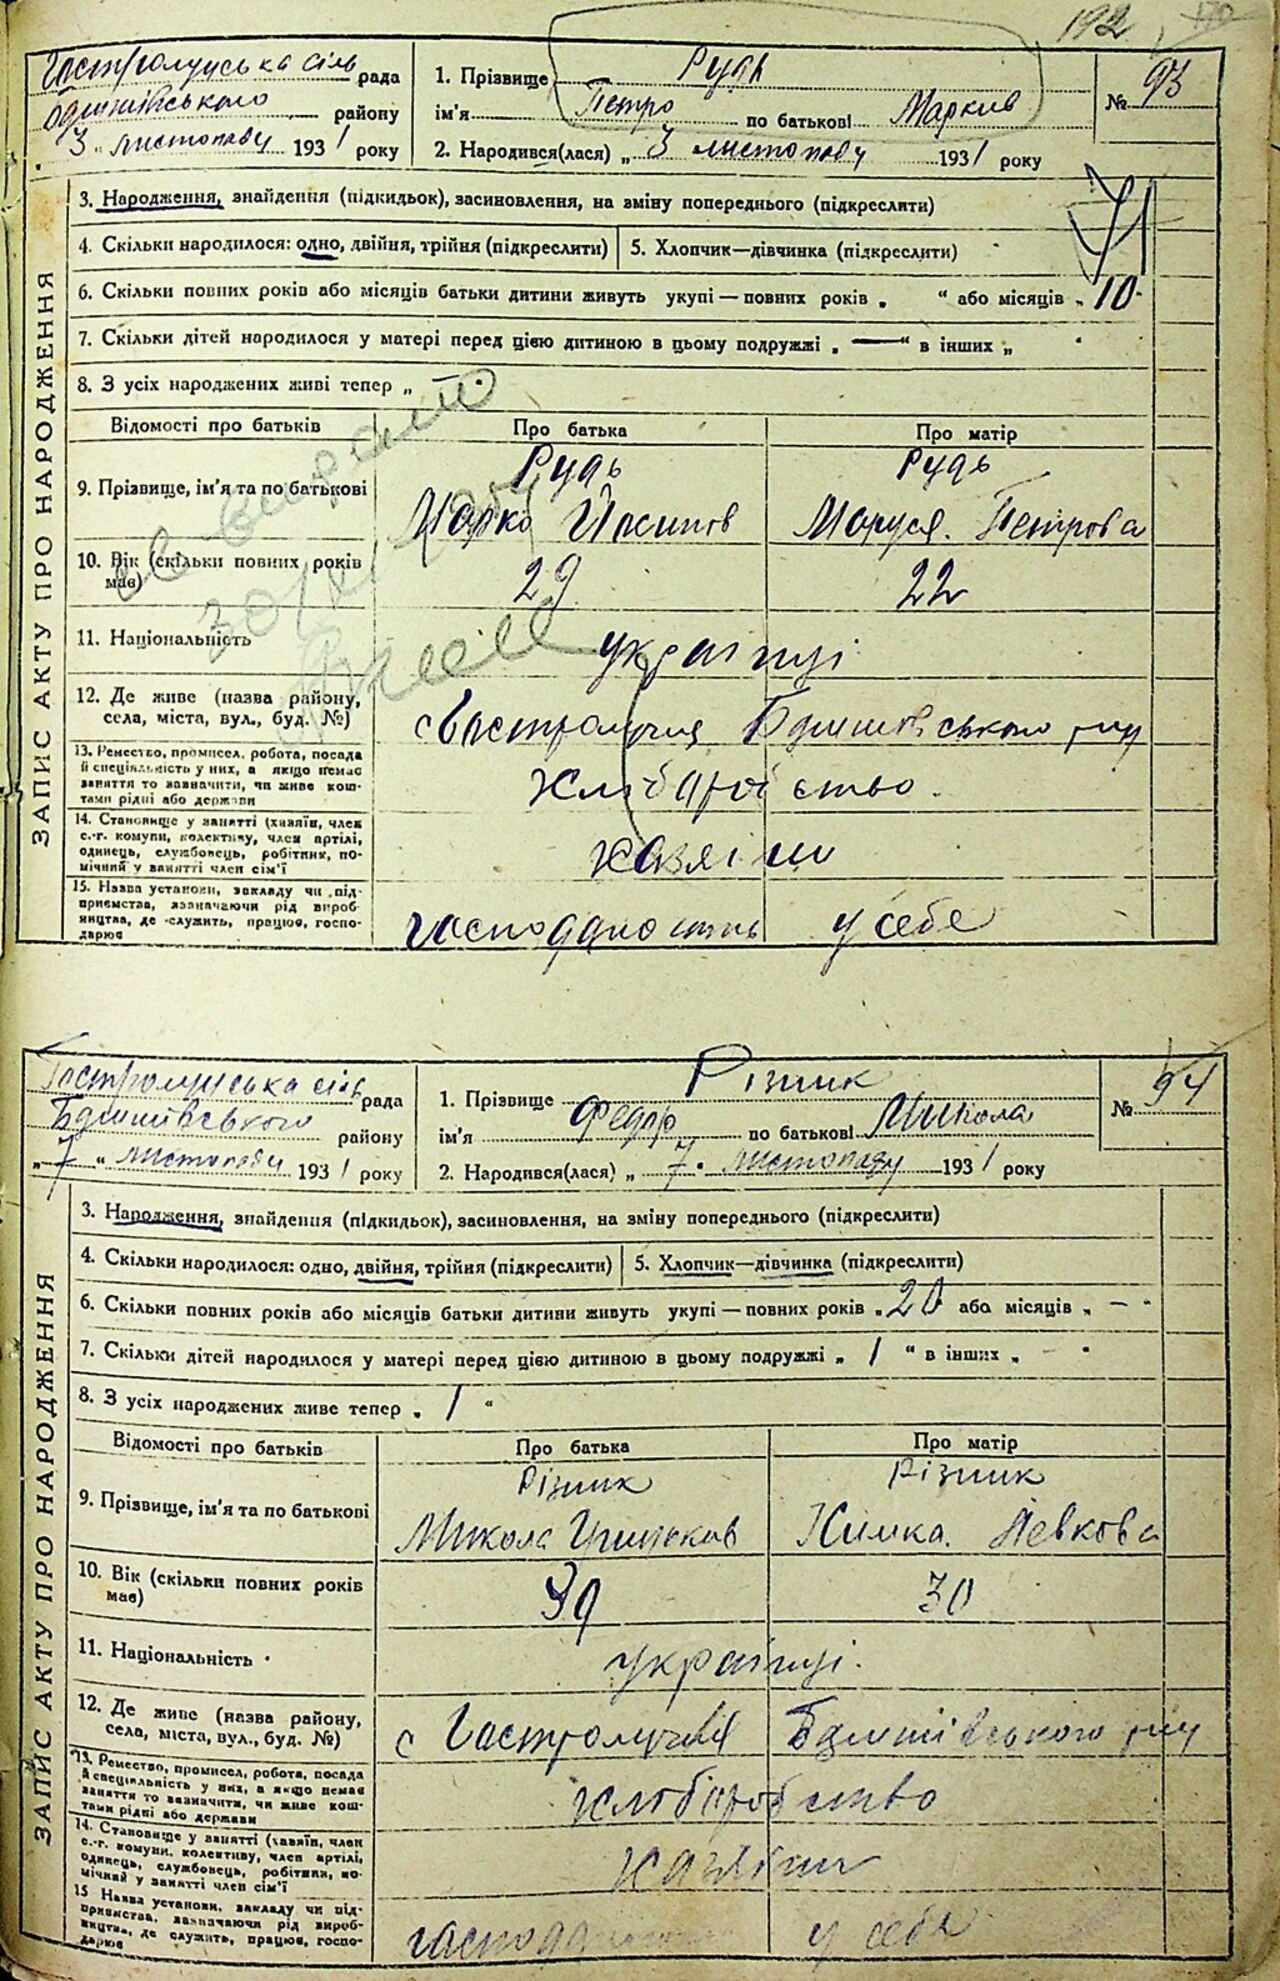 192
Гостролуцька сіль рада
Бдишівського району
„ 3 „ листопаду 1931 року
1. Прізвище Рудь
ім'я Петро по батькові Марків
2. Народився(лася) „ 3 листопаду 1931 року
№ 93
ЗАПИС АКТУ ПРО НАРОДЖЕННЯ
3. Народження, знайдення (підкидьок), засиновлення, на зміну попереднього (підкреслити)
4. Скільки народилося: одно, двійня, трійня (підкреслити) 5. Хлопчик—дівчинка (підкреслити)
6. Скільки повних років або місяців батьки дитини живуть укупі — повних років „ “ або місяців „ 10
7. Скільки дітей народилося у матері перед цією дитиною в цьому подружжі „ — “ в інших „
8. З усіх народжених живі тепер „ —
Відомості про батьків Про батька Про матір
9. Прізвище, ім'я та по батькові
Рудь Рудь
Марко Йосипов Маруся. Петрова
10. Вік (скільки повних років має) 29 22
11. Національність українці
12. Де живе (назва району, села, міста, вул., буд. №)
с Гостролуччя Бдишівського р-ну
13. Ремество, промисел, робота, посада
й спеціяльність у них, а якщо немає
заняття то зазначити, чи живе кош-
тами рідні або держави
хліборобство.
14. Становище у занятті (хазяїн, член
с.-г. комуни, колективу, член артілі,
одинець, службовець, робітник, по-
мічний у занятті член сім'ї
хазяіни
15. Назва установи, закладу чи під-
приємства, зазначаючи рід вироб-
ництва, де служить, працює, госпо-
дарює
у себе
Гостролуцька сіль рада
Бдишівського району
„ 7 “ листопаду 1931 року
1. Прізвище Різник
ім'я Федір по батькові Микола
2. Народився(лася) „ 7 . листопаду 1931 року
№ 94
ЗАПИС АКТУ ПРО НАРОДЖЕННЯ
3. Народження, знайдення (підкидьок), засиновлення, на зміну попереднього (підкреслити)
4. Скільки народилося: одно, двійня, трійня (підкреслити) 5. Хлопчик—дівчинка (підкреслити)
6. Скільки повних років або місяців батьки дитини живуть укупі — повних років „ 20 або місяців „ — “
7. Скільки дітей народилося у матері перед цією дитиною в цьому подружжі „ 1 “ в інших „ — “
8. З усіх народжених живе тепер „ 1 “
Відомості про батьків Про батька Про матір
9. Прізвище, ім'я та по батькові
Різник Різник
Микола Химка. Левкова
10. Вік (скільки повних років має) 39 30
11. Національність українці.
12. Де живе (назва району, села, міста, вул., буд. №)
с Гостролуччя Бдишівського р-ну
13. Ремество, промисел, робота, посада
й спеціяльність у них, а якщо немає
заняття то зазначити, чи живе кош-
тами рідні або держави
хліборобство
14. Становище у занятті (хазяїн, член
с.-г. комуни, колективу, член артілі,
одинець, службовець, робітник, по-
мічний у занятті член сім'ї
хазяїни
15 Назва установи, закладу чи під-
приємства, зазначаючи рід вироб-
ництва, де служить, працює, госпо-
дарює
у себе